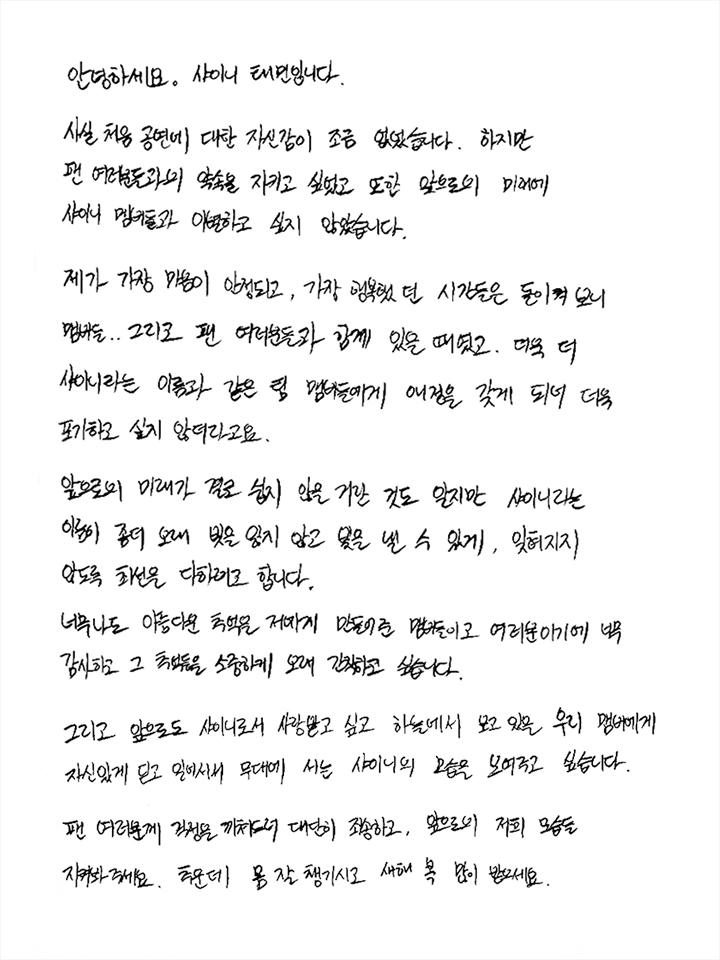 안녕하세요. 샤이니 태민입니다.
사실 처음 공연에 대한 자신감이 조금 없었습니다. 하지만
팬 여러분들과의 약속을 지키고 싶었고 또한 앞으로의 미래에
샤이니 멤버들과 이별하고 싶지 않았습니다.
제가 가장 마음이 안정되고, 가장 행복했던 시간들은 돌이켜 보니
멤버들.. 그리고 팬 여러분들과 함께 있을 때였고. 더욱 더
샤이니라는 이름과 같은 팀 멤버들에게 애정을 갖게 되니 더욱
포기하고 싶지 않더라고요.
앞으로의 미래가 결코 쉽지 않을 거란 것도 알지만 샤이니라는
이름이 좀더 오래 빛을 잃지 않고 빛을 낼 수 있게, 잊혀지지
않도록 최선을 다하려고 합니다.
너무나도 아름다운 추억을 저에게 만들어준 멤버들이고 여러분이기에 너무
감사하고 그 추억들을 소중하게 오래 간직하고 싶습니다.
그리고 앞으로도 샤이니로서 사랑받고 싶고 하늘에서 보고 있을 우리 멤버에게
자신있게 딛고 일어서서 무대에 서는 샤이니의 모습을 보여주고 싶습니다.
팬 여러분께 걱정을 끼쳐드려 대단히 죄송하고, 앞으로의 저희 모습들
지켜봐주세요. 추운데 몸 잘 챙기시고 새해 복 많이 받으세요.